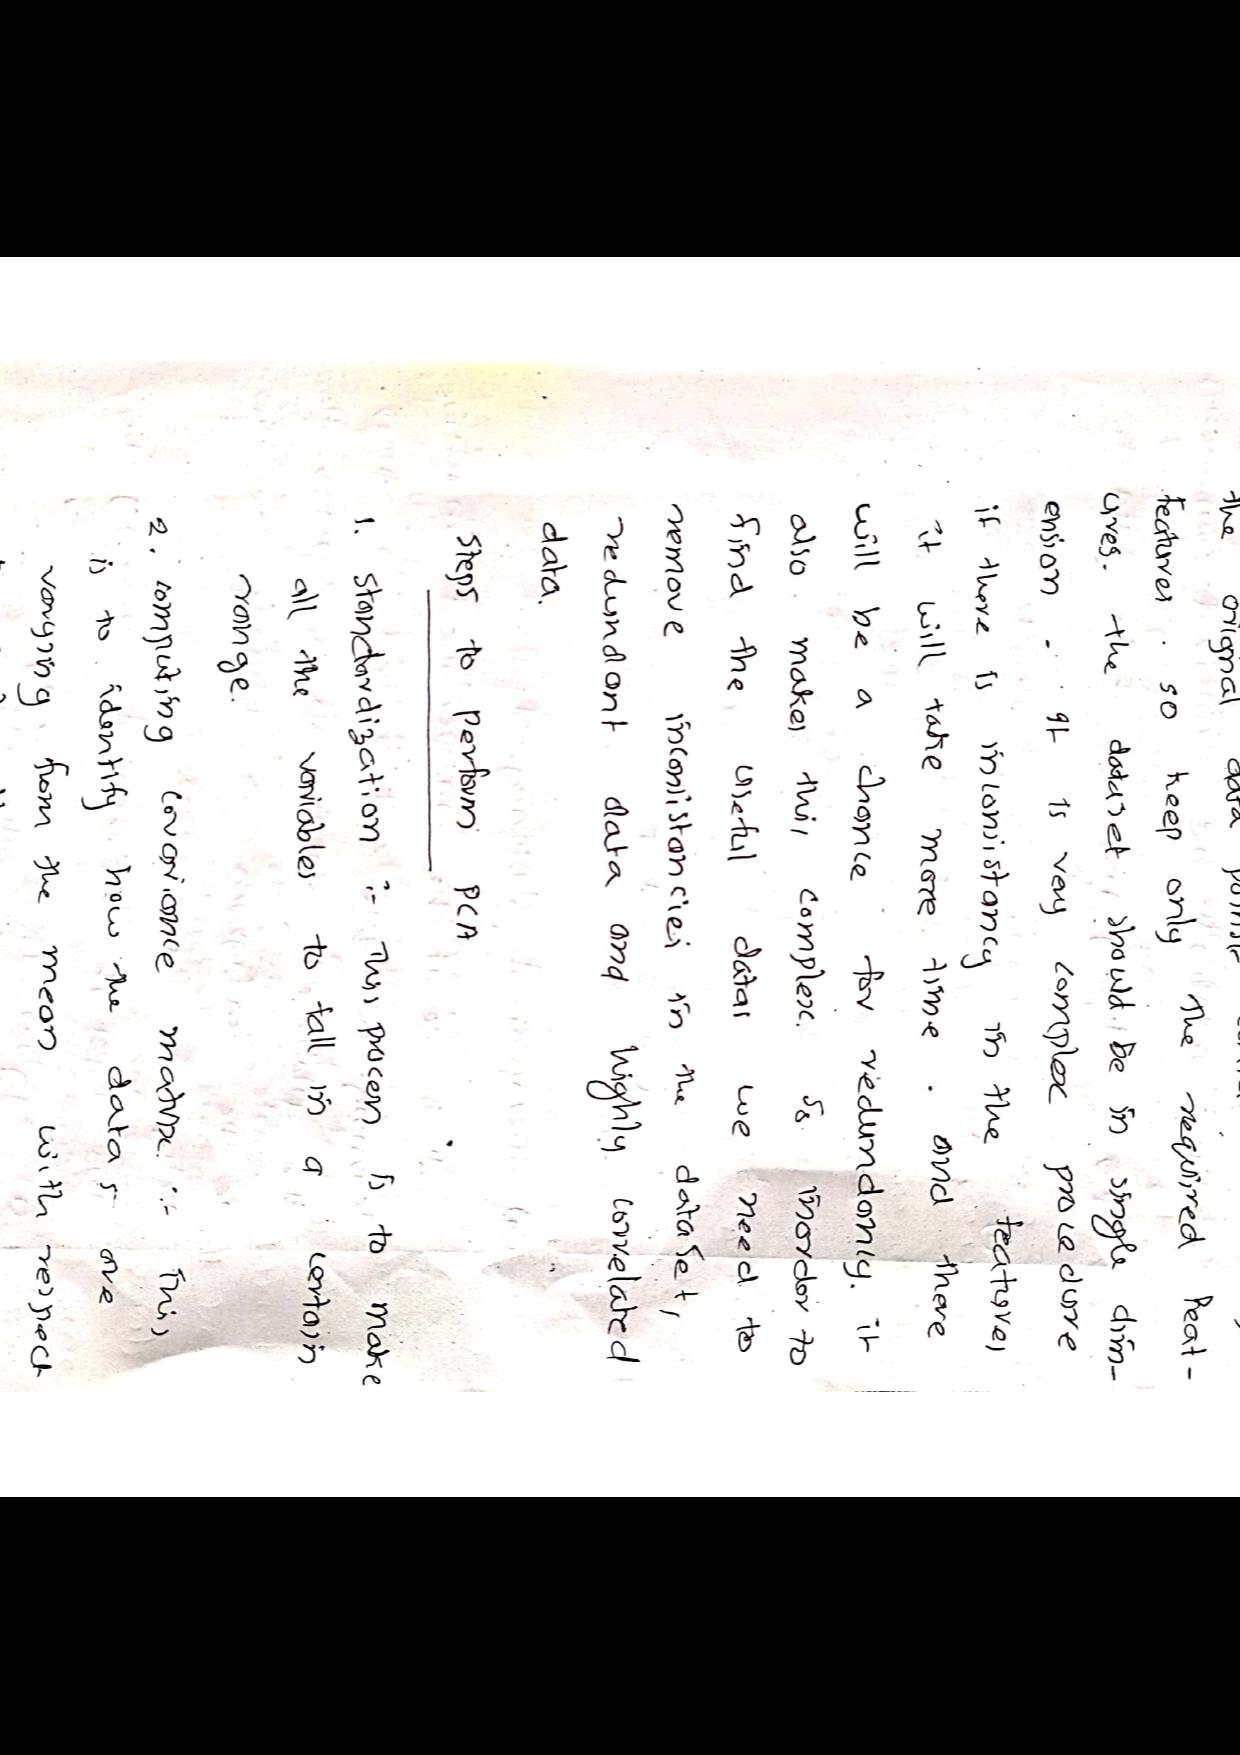 the original data points
features. so keep only the required feat-
ures. the dataset should be in single dim-
ension. It is very complex procedure
if there is inconsistancy in the features
it will take more time. and there
will be a chance for redundancy. it
also makes this complex. so inorder to
find the useful datas we need to
remove inconsistancies in the dataset,
redundant data and highly correlated
data.
Steps to perform PCA
1. Standardization :- This process is to make
all the variables to fall in a certain
range.
2. computing covariance matrix :- This
is to identify how the datas are
varying from the mean with respect